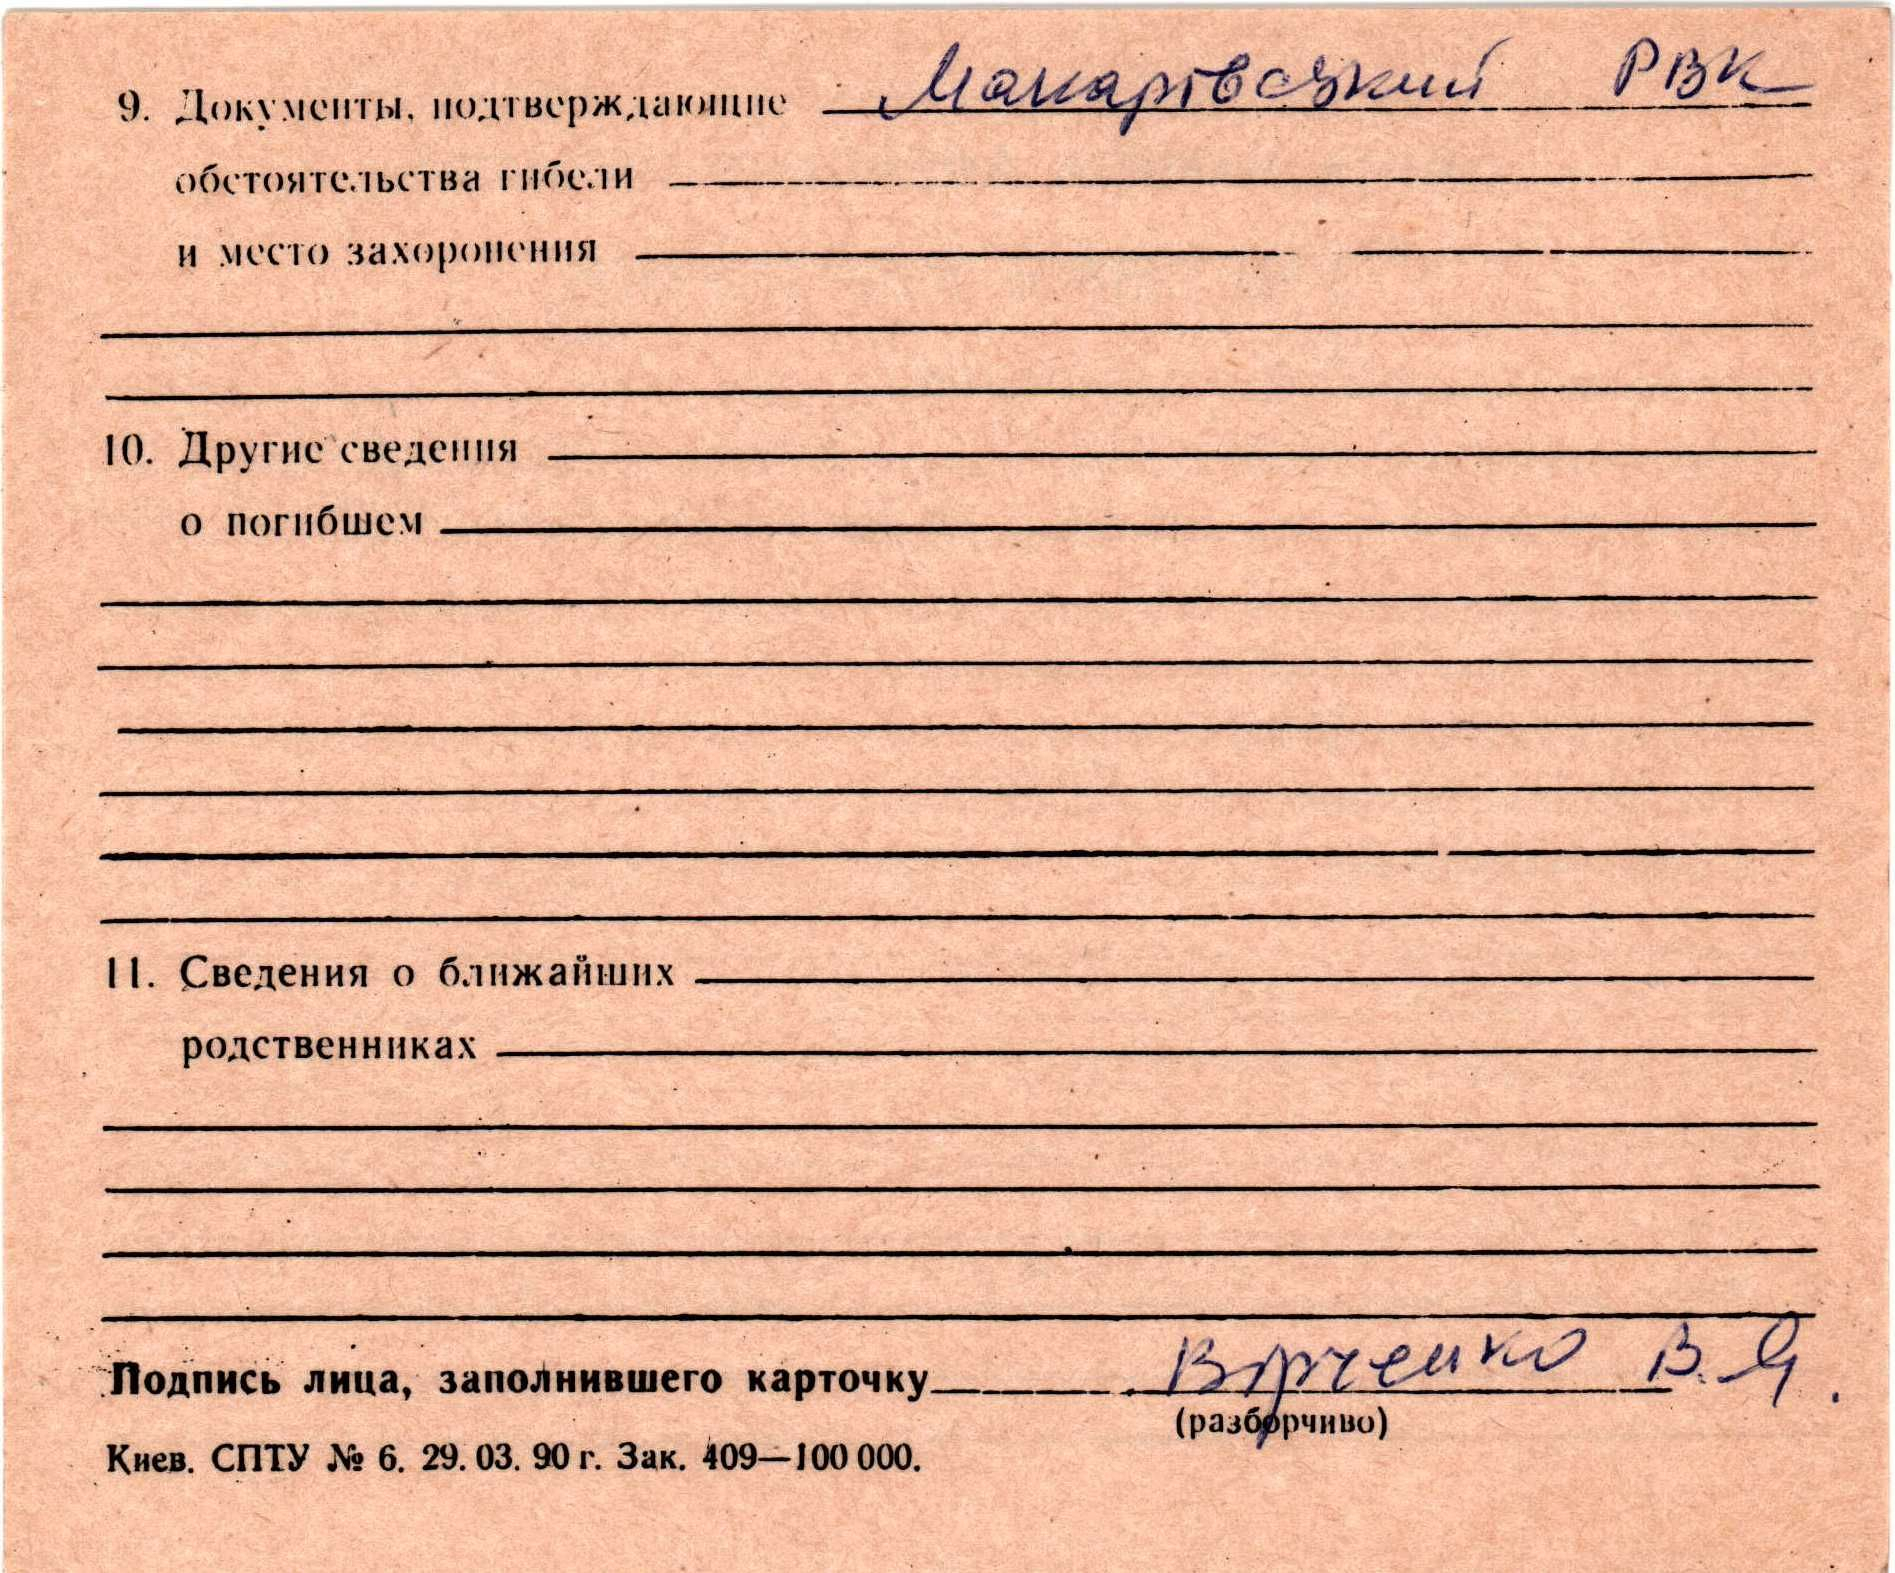 9. Документы, подтверждающие Макаровский РВК
обстоятельства гибели
и место захоронения
10. Другие сведения
о погибшем
11. Сведения о ближайших
родственниках
Подпись лица, заполнившего карточку В. Я.
(разборчиво)
Киев. СПТУ № 6. 29.03.90 г. Зак. 409—100 000.